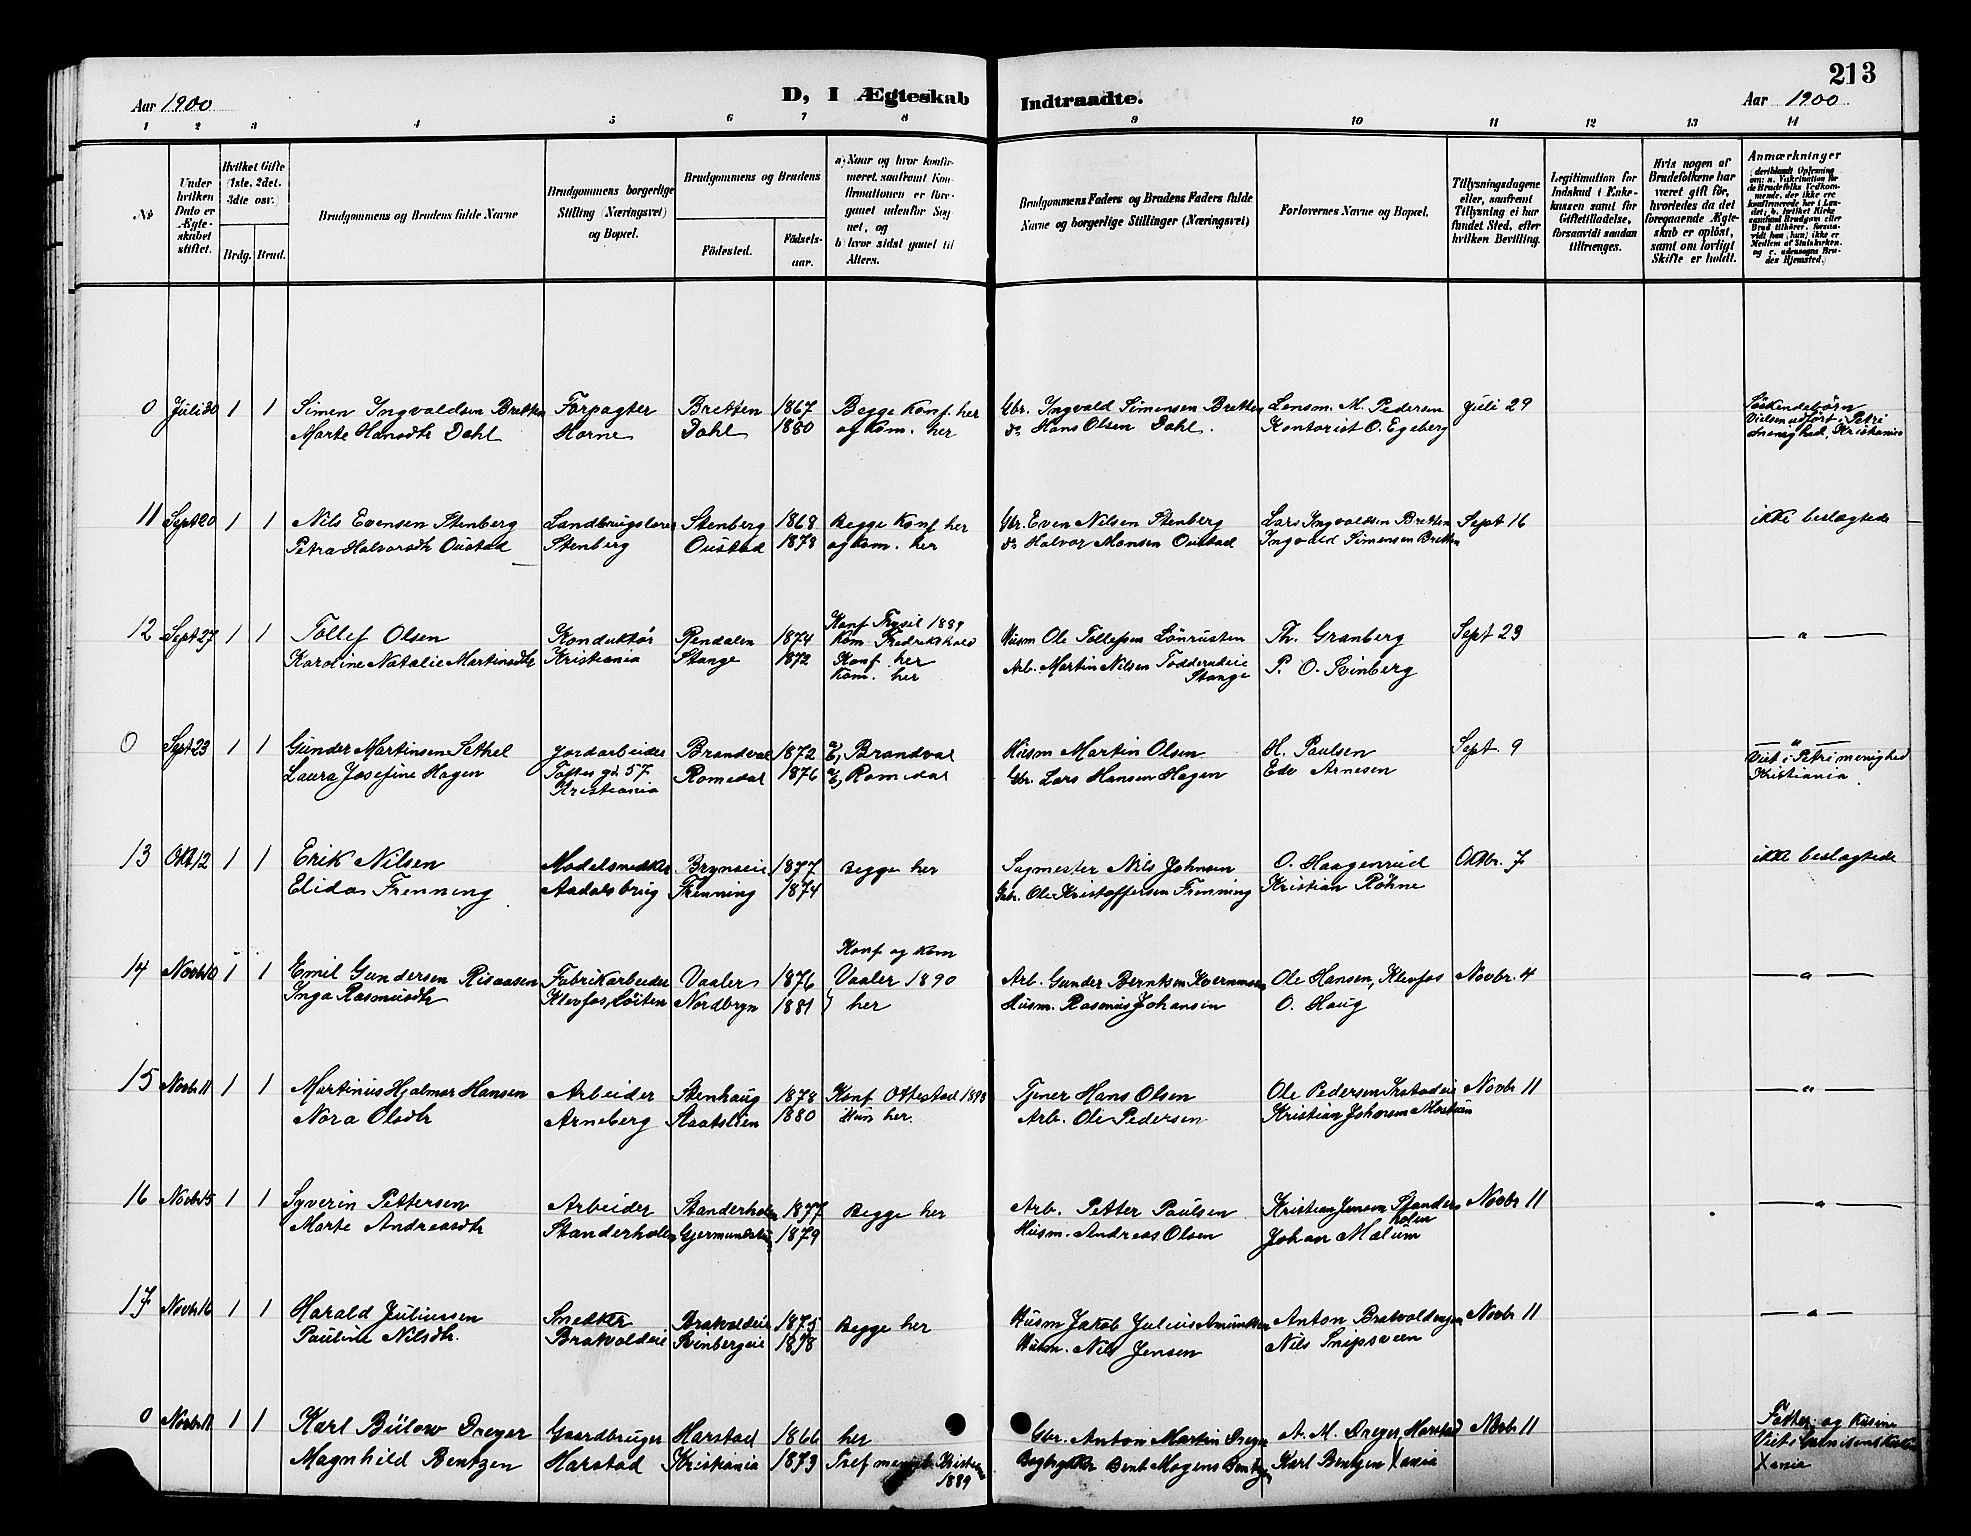 213
Aar 1900
D, I Ægteskab Indtraadte.
Aar 1900
1 2 3 4 5 6 7 8 9 10 11 12 13 14
№
Under hvilken Dato er Ægteskabet stiftet.
Hvilket Gifte (1ste, 2det, 3die osv.)
Brdg. Brud.
Brudgommens og Brudens fulde Navne
Brudgommens borgerlige Stilling (Næringsvei) og Bopæl.
Brudgommens og Brudens
Födested. Födselsaar.
a) Naar og hvor konfirmeret, saafremt Konfirmationen er foregaaet udenfor Sognet, og
b) hvor sidst gaaet til Alters.
Brudgommens Faders og Brudens Faders fulde Navne og borgerlige Stillinger (Næringsvei)
Forlovernes Navne og Bopæl.
Tillysningsdagene eller, saafremt Tillysning ei har fundet Sted, efter hvilken Bevilling.
Legitimation for Indskud i Enkekassen samt for Giftetilladelse, forsaavidt saadan tiltrænges.
Hvis nogen af Brudefolkene har været gift för, hvorledes da det foregaaende Ægteskab er oplöst, samt om lovligt Skifte er holdt.
Anmærkninger
0 Juli 30 1 1 Simen Ingvaldsen Bretten Forpagter Bretten 1867 Begge Konf. her Gbr. Ingvald Simensen Bretten Lensm. M. Pedersen Juli 29 Söskendebörn
Marte Hansdtr Dahl Horne Dahl 1880 og Kom. her do Hans Olsen Dahl. Kontorist O. Egeberg Vielsen udfört i Petri
menighed, Kristiania
11 Sept 20 1 1 Nils Evensen Stenberg Landbrugslærer Stenberg 1868 Begge Konf her Gbr. Even Nilsen Stenberg Lars Ingvaldsen Bretten Sept 16 ikke beslægtede
Petra Halvorsdtr Oustad Stenberg Oustad 1878 og Kom. her do Halvor Monsen Oustad Ingvald Simensen Bretten
12 Sept 27 1 1 Tollef Olsen Konduktör Rendalen 1874 Konf Trysil 1889 Husm Ole Tollefsen Lönrusten Th. Granberg Sept 23 — " —
Kom Fredrikshald
Karoline Natalie Martinsdtr Kristiania Stange 1872 Konf. her Arb. Martin Nilsen P. O. Svinberg
Kom. her Stange
0 Sept 23 1 1 Gunder Martinsen Sethel Jordarbeider Brandval 1872 Brandval Husm Martin Olsen H. Paulsen Sept. 9 — " —
Laura Josefine Hagen Toftes gd 57 Romedal 1876 Romedal Gbr. Lars Hansen Hagen Edv Arnesen Viet i Petri menighed
Kristiania Kristiania
13 Okt 12 1 1 Erik Nilsen Modelsnedker Brynseie 1877 Begge her Sagmester Nils Johnsen O. Haagenrud Oktbr. 7 ikke beslægtede
Elida Frenning Aadalsbrug Frenning 1874 Gbr. Ole Kristoffersen Frenning Kristian Röhne
14 Novbr 10 1 1 Emil Gundersen Risaasen Fabrikarbeider Vaaler 1876 Konf og Kom Vaaler 1890 Arb. Gunder Berntsen Kvernmoen Ole Hansen, Klevfos Novbr. 4 — " —
Inga Rasmusdtr Klevfos, Löiten Nordbryn 1881 her Husm. Rasmus Johansen O. Haug
15 Novbr 11 1 1 Martinus Hjalmar Hansen Arbeider Stenhaug 1878 Konf Ottestad 1893 Tjener Hans Olsen Ole Pedersen Novbr 11 — " —
Nora Olsdtr Arneberg Staatslien 1880 Hun her. Arb. Ole Pedersen Kristian Johansen
16 Novbr 15 1 1 Syverin Pettersen Arbeider Standerholen 1877 Begge her Arb. Petter Paulsen Kristian Jenson Standerholen Novbr 11 — " —
Marte Andreasdtr Standerholen 1879 Husm. Andreas Olsen Johan Mælum
17 Novbr 16 1 1 Harald Juliussen Snedker Bratvoldeie 1875 Begge her Husm Jakob Julius Amundsen Anton Bratvoldengen Novbr 11 — " —
Pauline Nilsdtr. Bratvoldeie Svinbergeie 1878 Husm. Nils Jensen Nils Snipsveen
0 Novbr 1 1 Karl Bülow Dreyer Gaardbruger Harstad 1866 her Gbr. Anton Martin Dreyer A. M. Dreyer, Harstad Novbr 11 Fætter og Kusine
Magnhild Bentzen Harstad Kristiania 1873 Kristiania Bent Mogens Bentzen Karl Bentzen Xania Viet i Garnisonskirken
1889 Xania